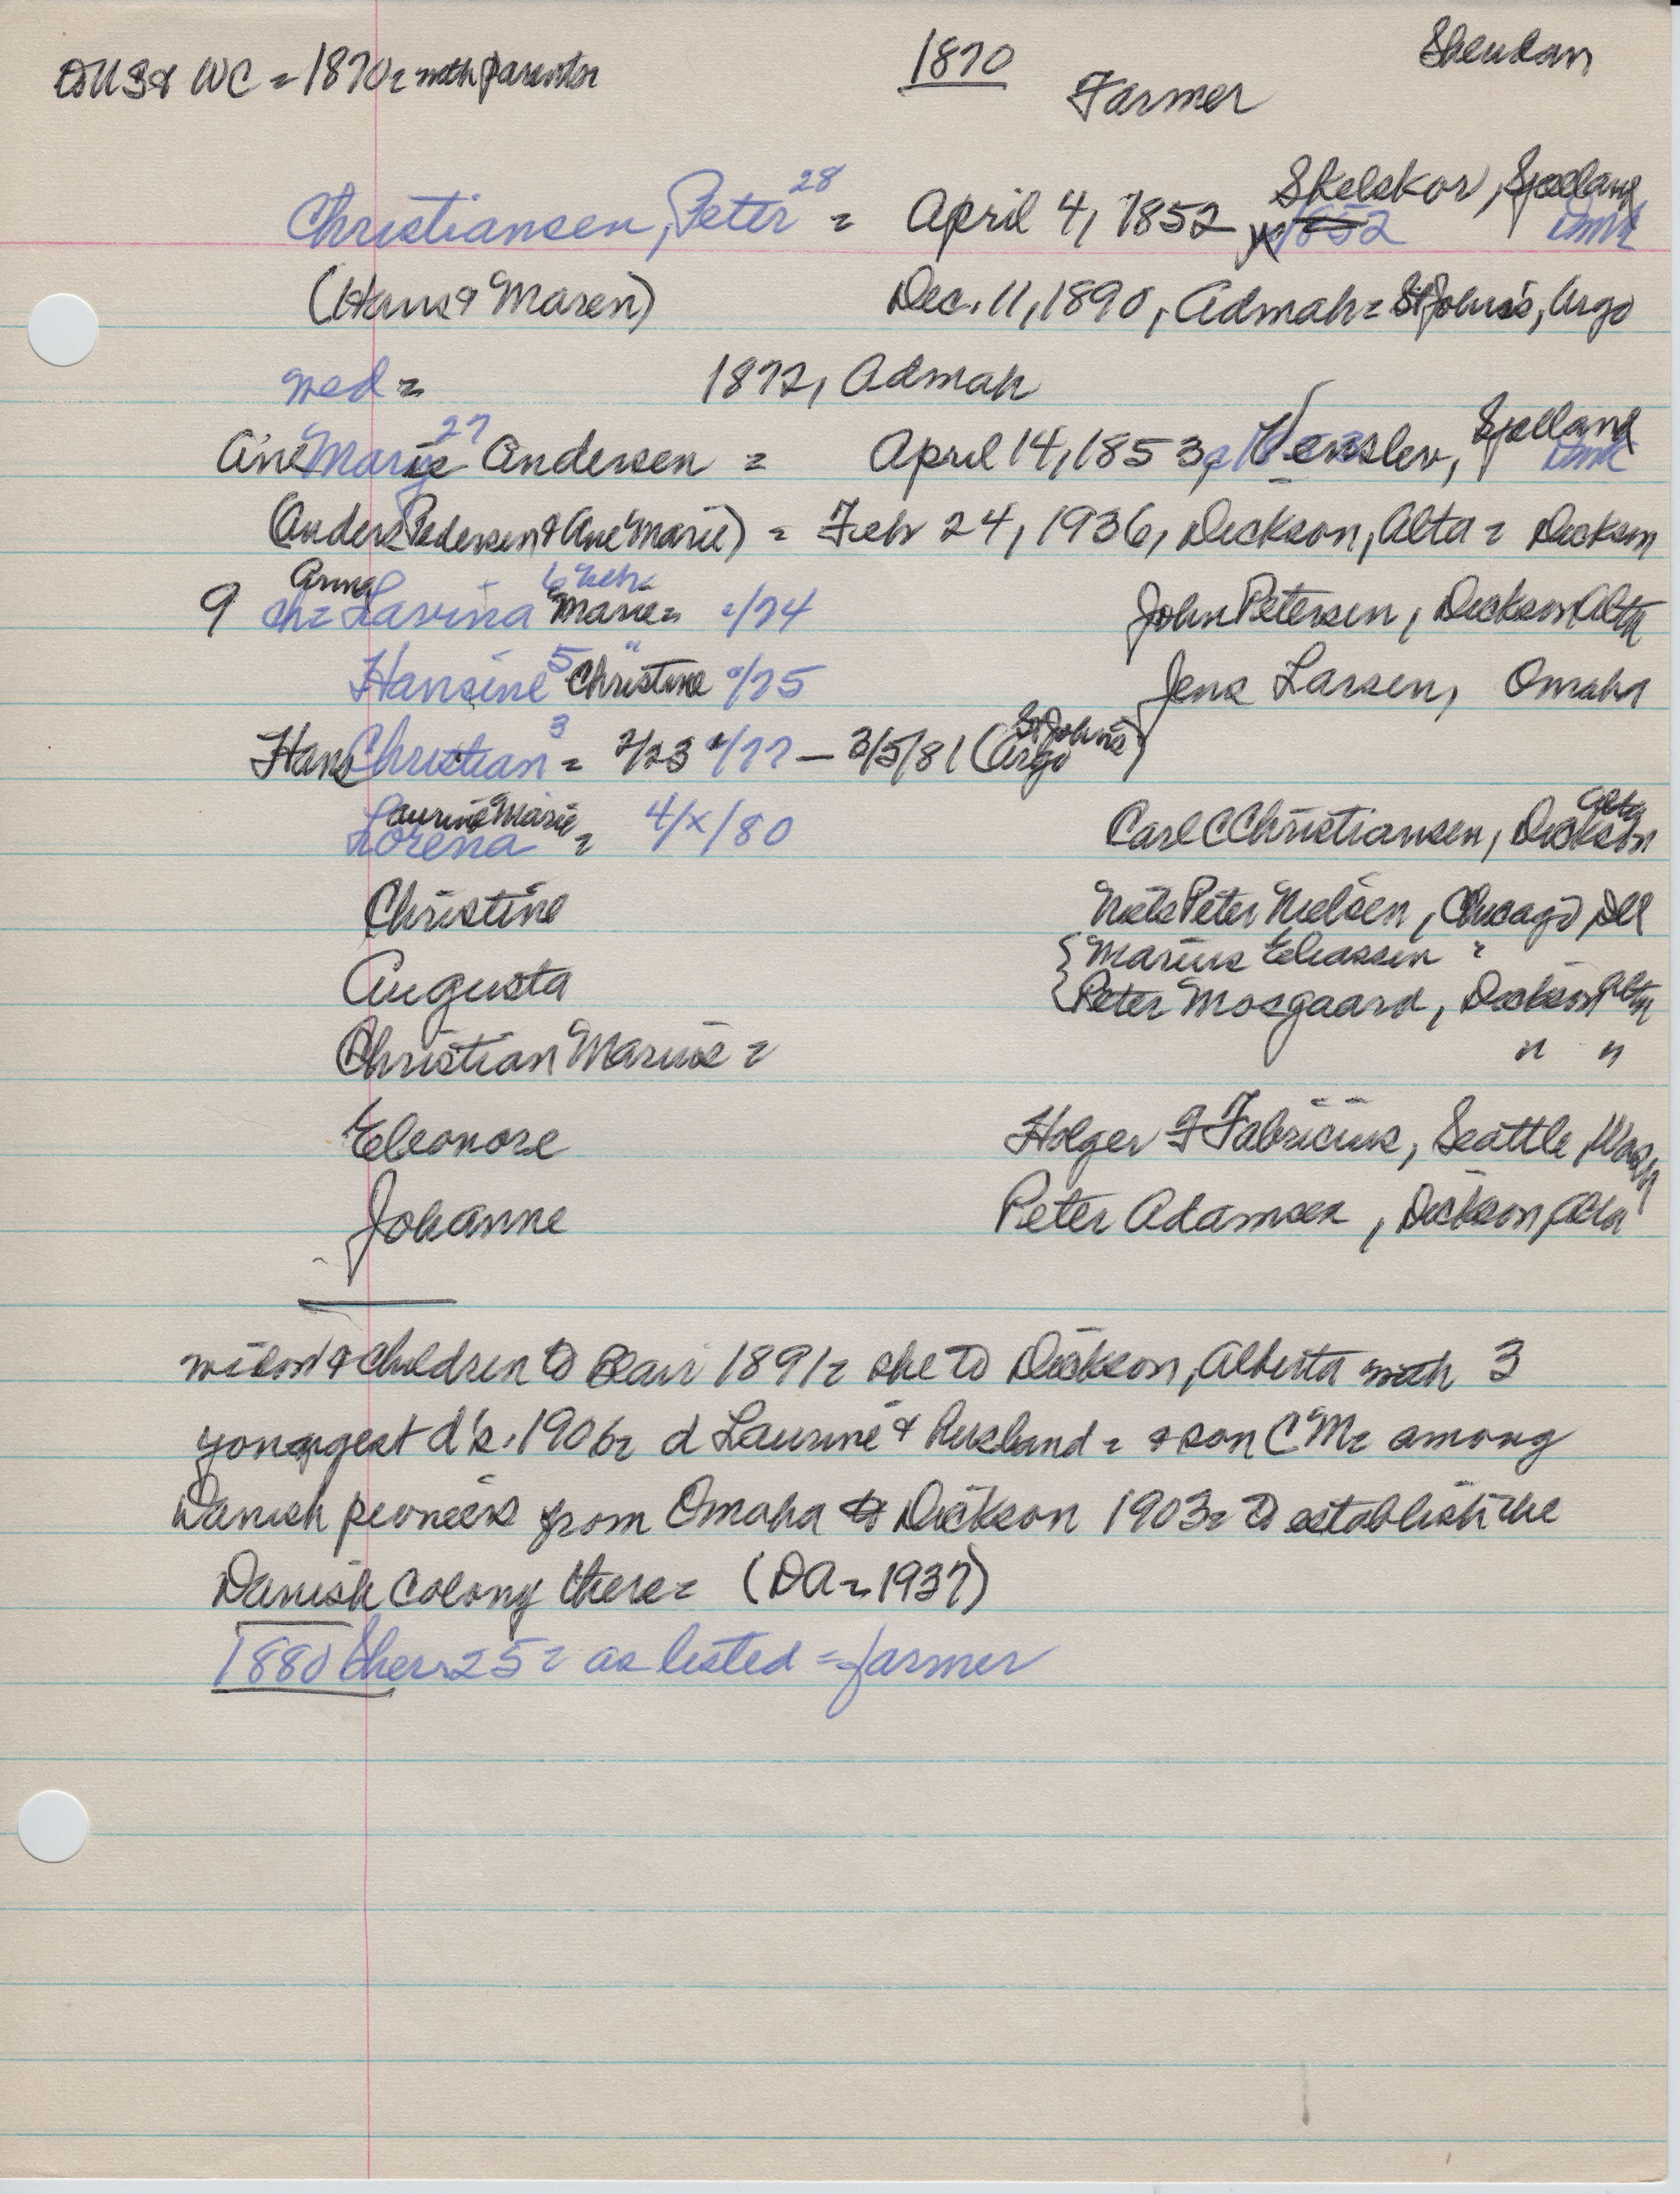 to US & WC = 1870 = with parents
1870
Sheridan
Farmer
Christiansen, Peter 28 = April 4, 1852 Skelskor, Sjelland
1852 Dmk
(Hans & Maren) Dec. 11, 1890, Admah = St John's, Argo
wed = 1872, Admah
Ane Marie 27 Andersen = April 14, 1853, Venslev, Sjelland Dmk
(Anders Pedersen & Ane Marie) = Feb 24, 1936, Dickson, Alta = Dickson
9 ch = Anna Lavina 6 Neb. Marie = c/74 John Petersen, Dickson Alta
Hansine 5 " Christine c/75 Jens Larsen, Omaha
Hans Christian 3 = 2/23 c/77 – 3/5/81 (St John's Argo)
Laurine Marie
Lorena = 4/x/80 Carl C Christiansen, Dickson Alta
Christine Niels Peter Nielsen, Chicago, Ill
{ Marius Eliassen "
Augusta { Peter Mosgaard, Dickson Alta
Christian Marius = " "
Eleonore Holger F Fabricius, Seattle Wash
Johanne Peter Adamsen, Dickson, Alta
widow & children to Blair 1891 = she to Dickson, Alberta with 3
youngest d's. 1906 = d Laurine & husband = & son CM = among
Danish pioneers from Omaha to Dickson 1903 = to establish the
Danish Colony there = (DA = 1937)
1880 Sher 25 = as listed = farmer